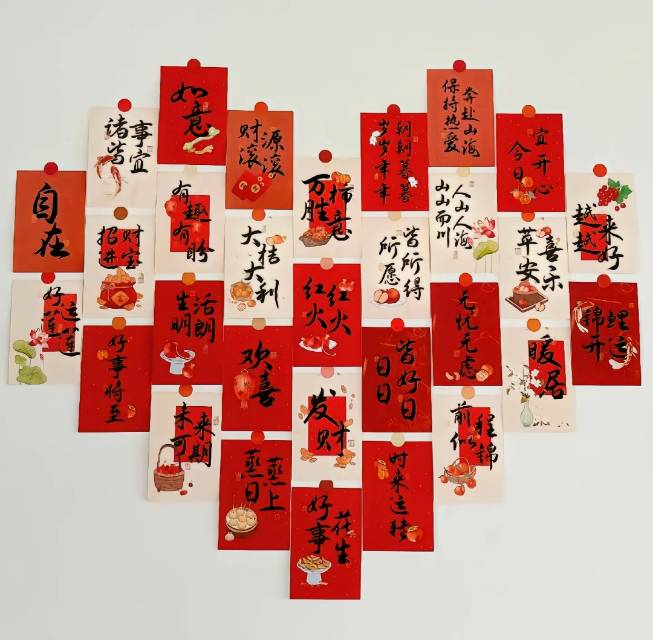 自在
好运
莲莲
诸事
皆宜
招财
进宝
好事将至
如意
有趣
有盼
生活
明朗
未来
可期
财源
滚滚
大桔
大利
欢喜
蒸蒸
日上
万柿
胜意
红红
火火
发财
好事
花生
朝朝暮暮
岁岁年年
皆所得
所愿
皆好日
日日
时来运转
奔赴山海
保持热爱
人山人海
山山而川
无忧无虑
前程
似锦
宜开心
今日
苹安
喜乐
暖居
越来
越好
锦鲤
开运